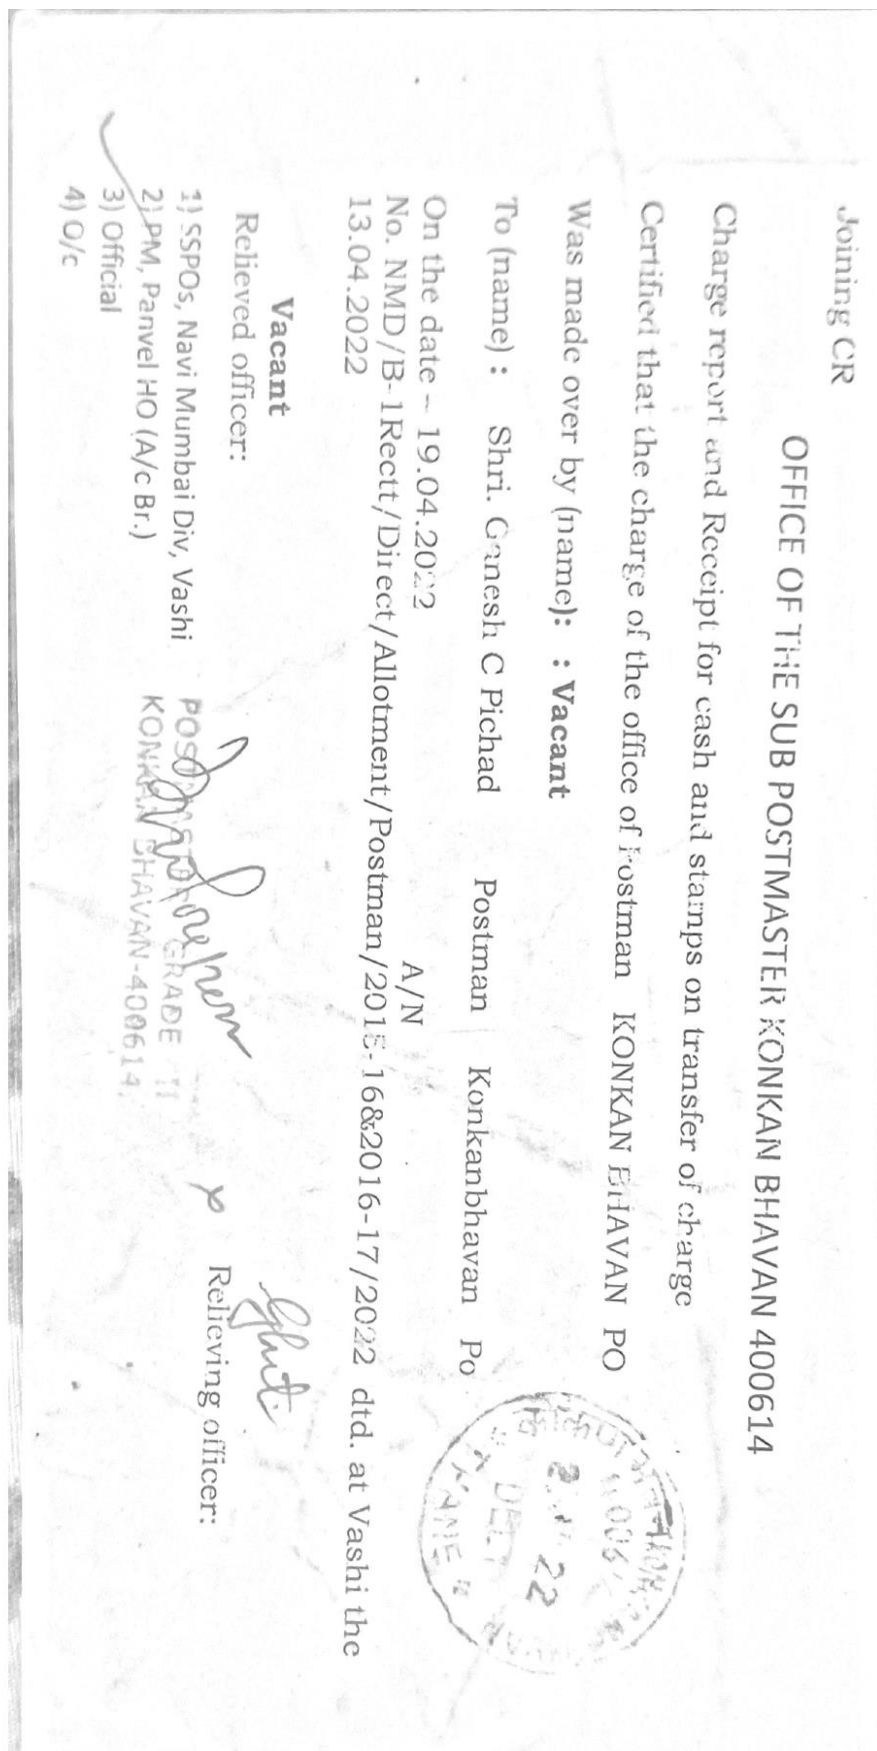 Joining CR
OFFICE OF THE SUB POSTMASTER KONKAN BHAVAN 400614
Charge report and Receipt for cash and stamps on transfer of charge
Certified that the charge of the office of Postman KONKAN BHAVAN PO
Was made over by (name): : Vacant
To (name) : Shri. Ganesh C Pichad Postman Konkanbhavan Po
On the date – 19.04.2022 A/N
No. NMD/B-1Rectt/Direct/Allotment/Postman/2015-16&2016-17/2022 dtd. at Vashi the
13.04.2022
Vacant
Relieved officer:
Relieving officer:
1) SSPOs, Navi Mumbai Div, Vashi
2) PM, Panvel HO (A/c Br.)
3) Official
4) O/c
GRADE II
KONKAN BHAVAN-400614.
22